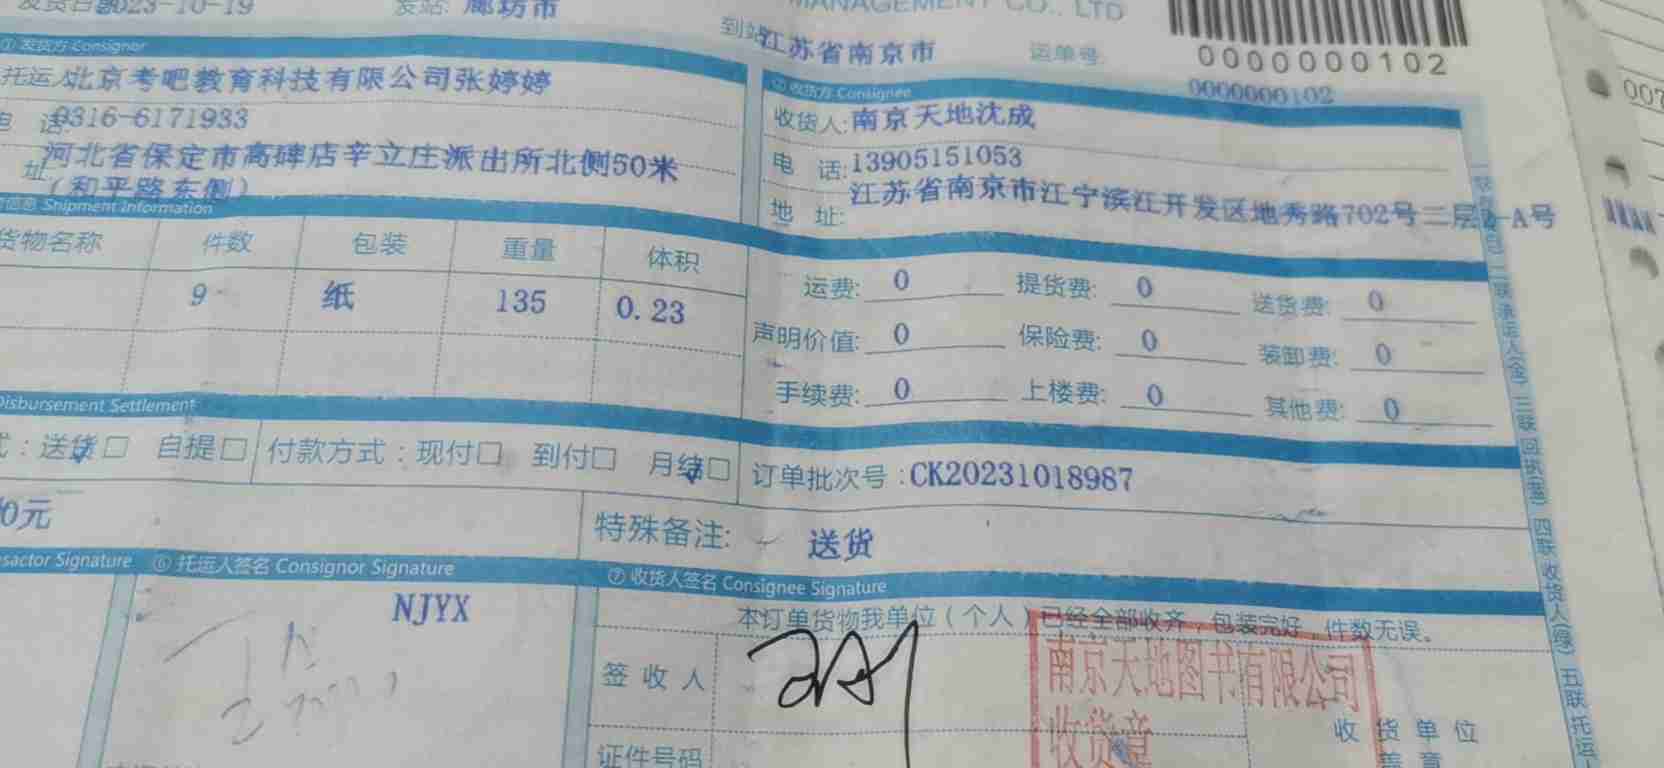 发货日期2023-10-19 发站: 廊坊市
MANAGEMENT CO., LTD
到站江苏省南京市 运单号:
0000000102
0000000102
① 发货方 Consignor
② 收货方 Consignee
托运人北京考吧教育科技有限公司张婷婷
收货人:南京天地沈成
电 话0316-6171933
电 话:13905151053
址:河北省保定市高碑店辛立庄派出所北侧50米
(和平路东侧)
地 址:江苏省南京市江宁滨江开发区地秀路702号二层2-A号
信息 Shipment Information
货物名称 件数 包装 重量 体积
9 纸 135 0.23
运费: 0 提货费: 0 送货费: 0
声明价值: 0 保险费: 0 装卸费: 0
手续费: 0 上楼费: 0 其他费: 0
Disbursement Settlement
式:送货□ 自提□ 付款方式:现付□ 到付□ 月结□ 订单批次号:CK20231018987
0元
特殊备注: 送货
sactor Signature ⑥ 托运人签名 Consignor Signature ⑦ 收货人签名 Consignee Signature
NJYX
本订单货物我单位(个人)已经全部收齐,包装完好,件数无误。
签 收 人
南京天地图书有限公司
收货章
收 货 单 位
盖 章
证件号码
二联承运人(金) 三联回执(蓝) 四联收货人(绿) 五联托运人
007